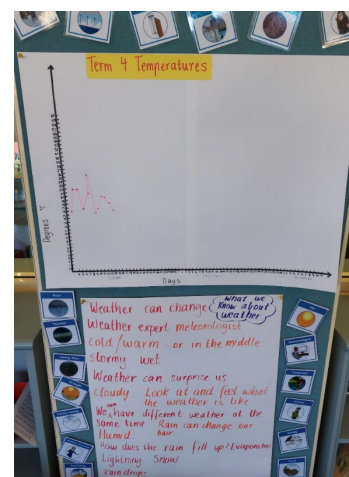 Term 4 Temperatures
Degrees °C
Days
What we
know about
weather
Weather can change
Weather expert meteorologist
cold/warm - or in the middle
stormy wet
Weather can surprise us
cloudy Look at and feel what
the weather is like
We can have different weather at the
same time Rain can change our
Humid hair
How does the rain fill up? Evaporation
Lightning Snow
rain drops